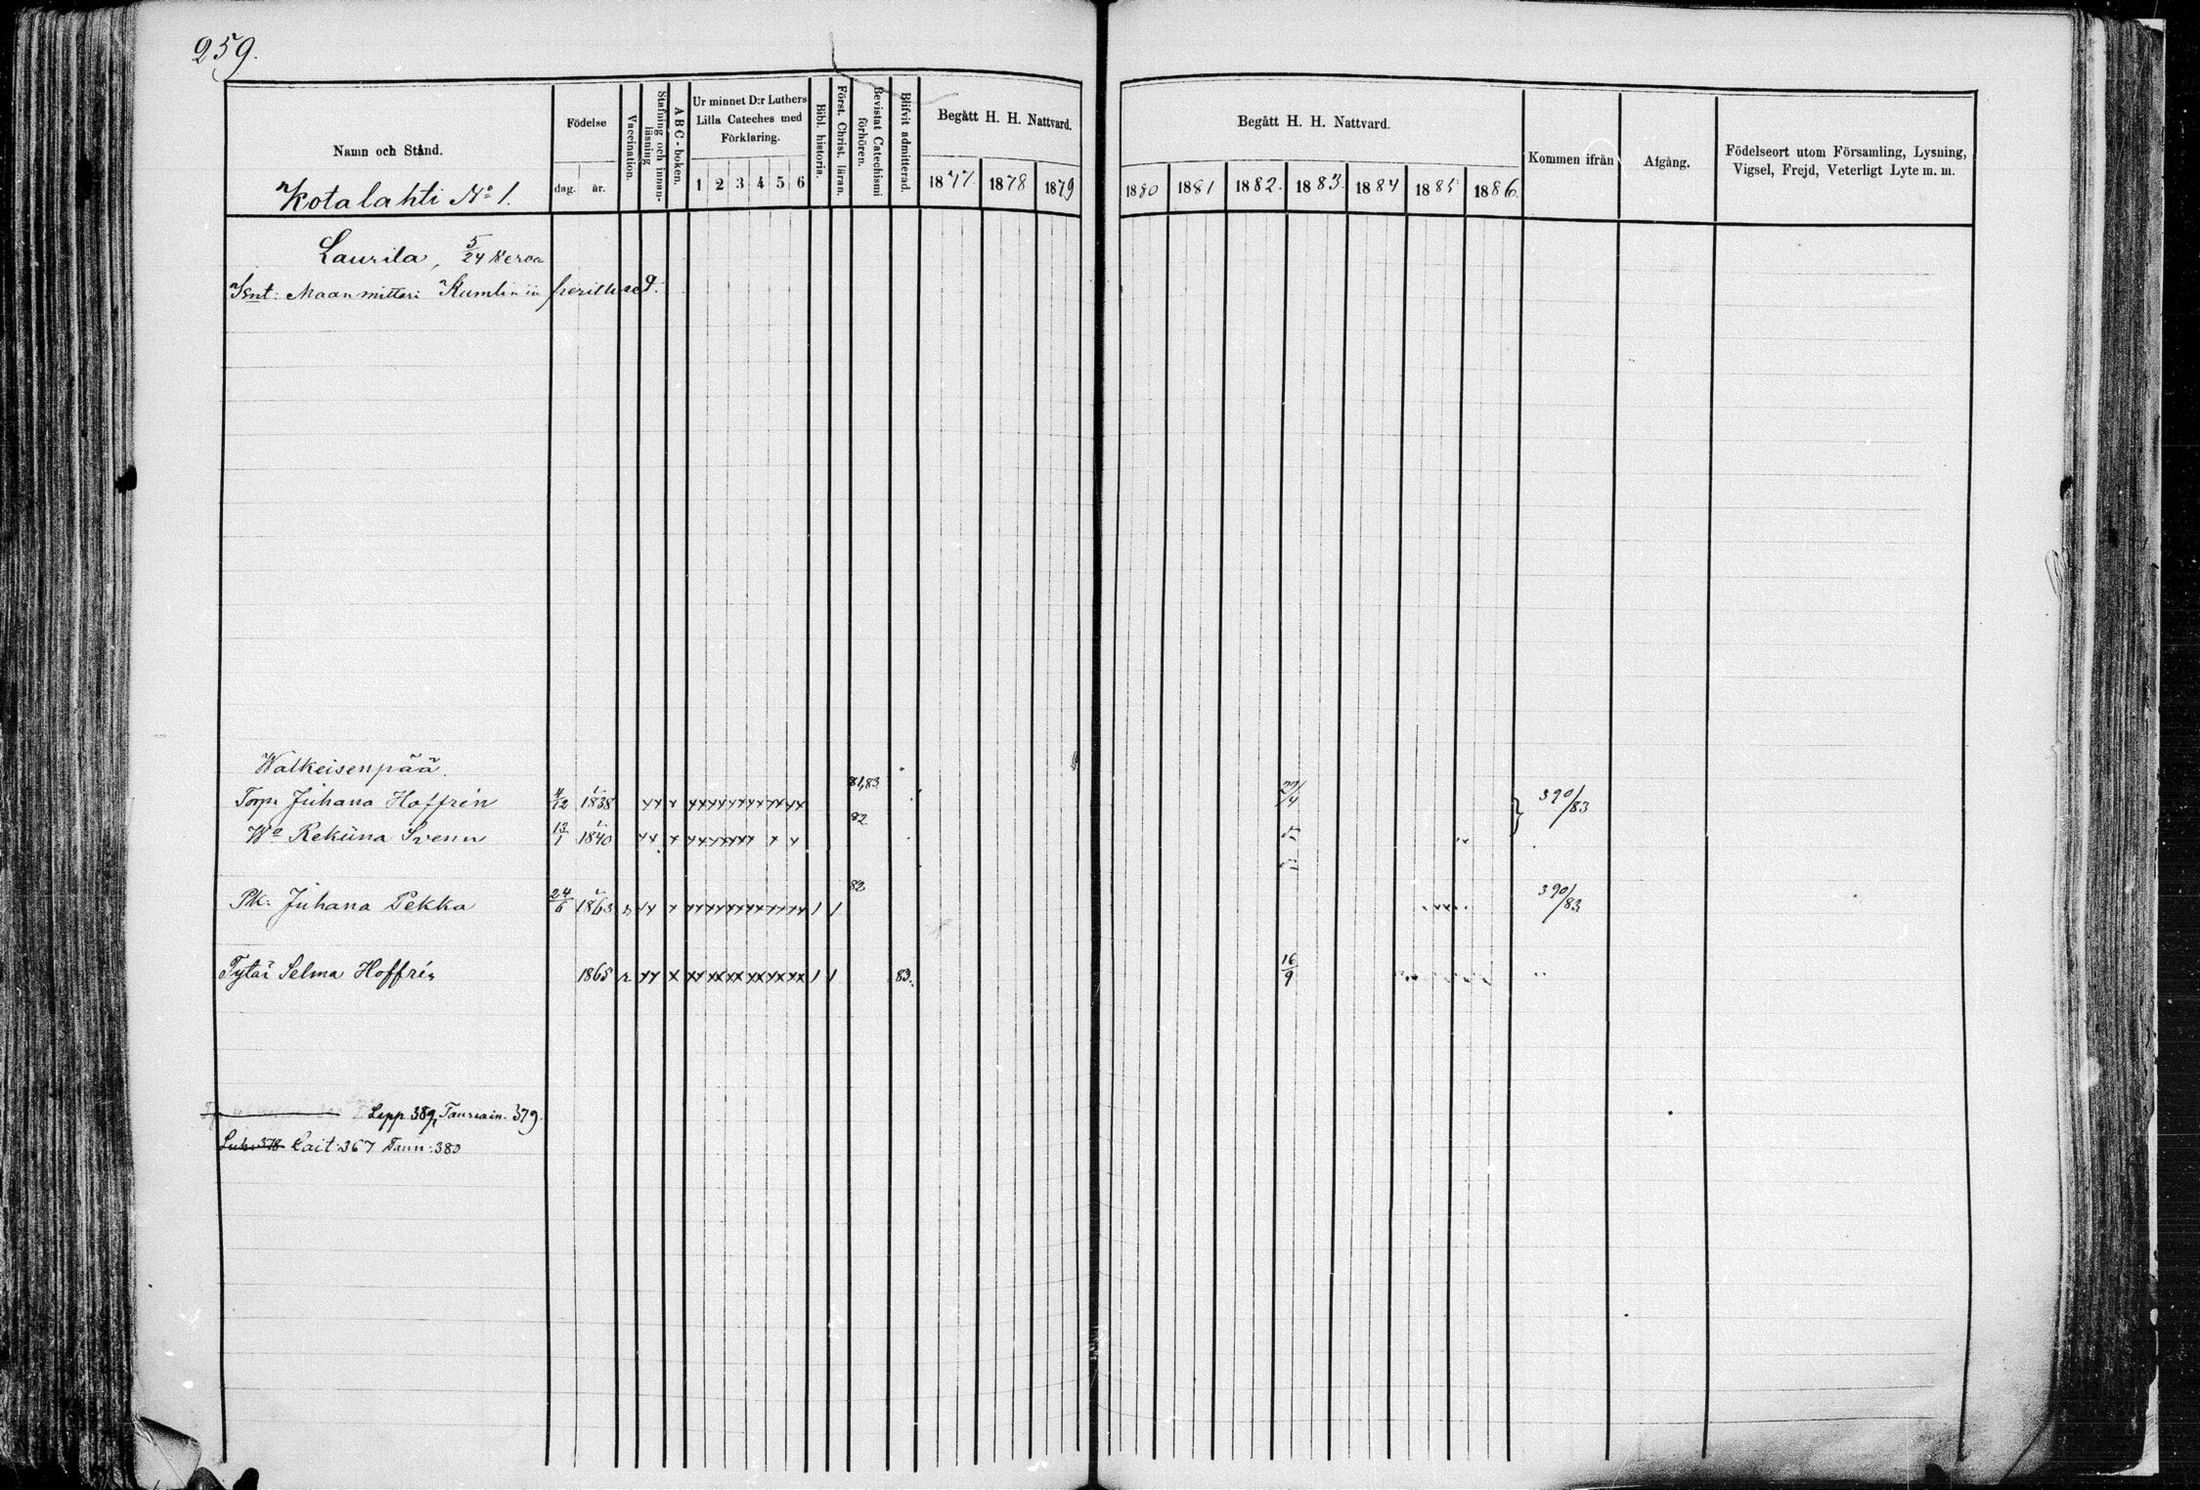 259.
Namn och Stånd.
Kotalahti No 1.
Födelse
dag. år.
Vaccination.
Stafning och innan-läsning.
ABC-boken.
Ur minnet D:r Luthers
Lilla Cateches med
Förklaring.
1 2 3 4 5 6
Bibl. historia.
Först. Christ. läran.
Bevistat Catechismi förhören.
Blifvit admitterad.
Begått H. H. Nattvard.
1877. 1878 1879
Begått H. H. Nattvard.
1880 1881 1882. 1883. 1884 1885 1886.
Kommen ifrån
Afgång.
Födelseort utom Församling, Lysning,
Vigsel, Frejd, Veterligt Lyte m. m.
Laurila, 5/24
Maanmittari Kumlinin
Walkeisenpää.
Torp. Juhana Hoffrén 4/12 1838 81,83 390/83
Wo Svenn 13/1 1840 82
Pk: Juhana Pekka 24/6 1863 82 390/83
Tytär Selma Hoffrén 1865 83. 16/9
Lepp 389, 379.
Lait: 367 380